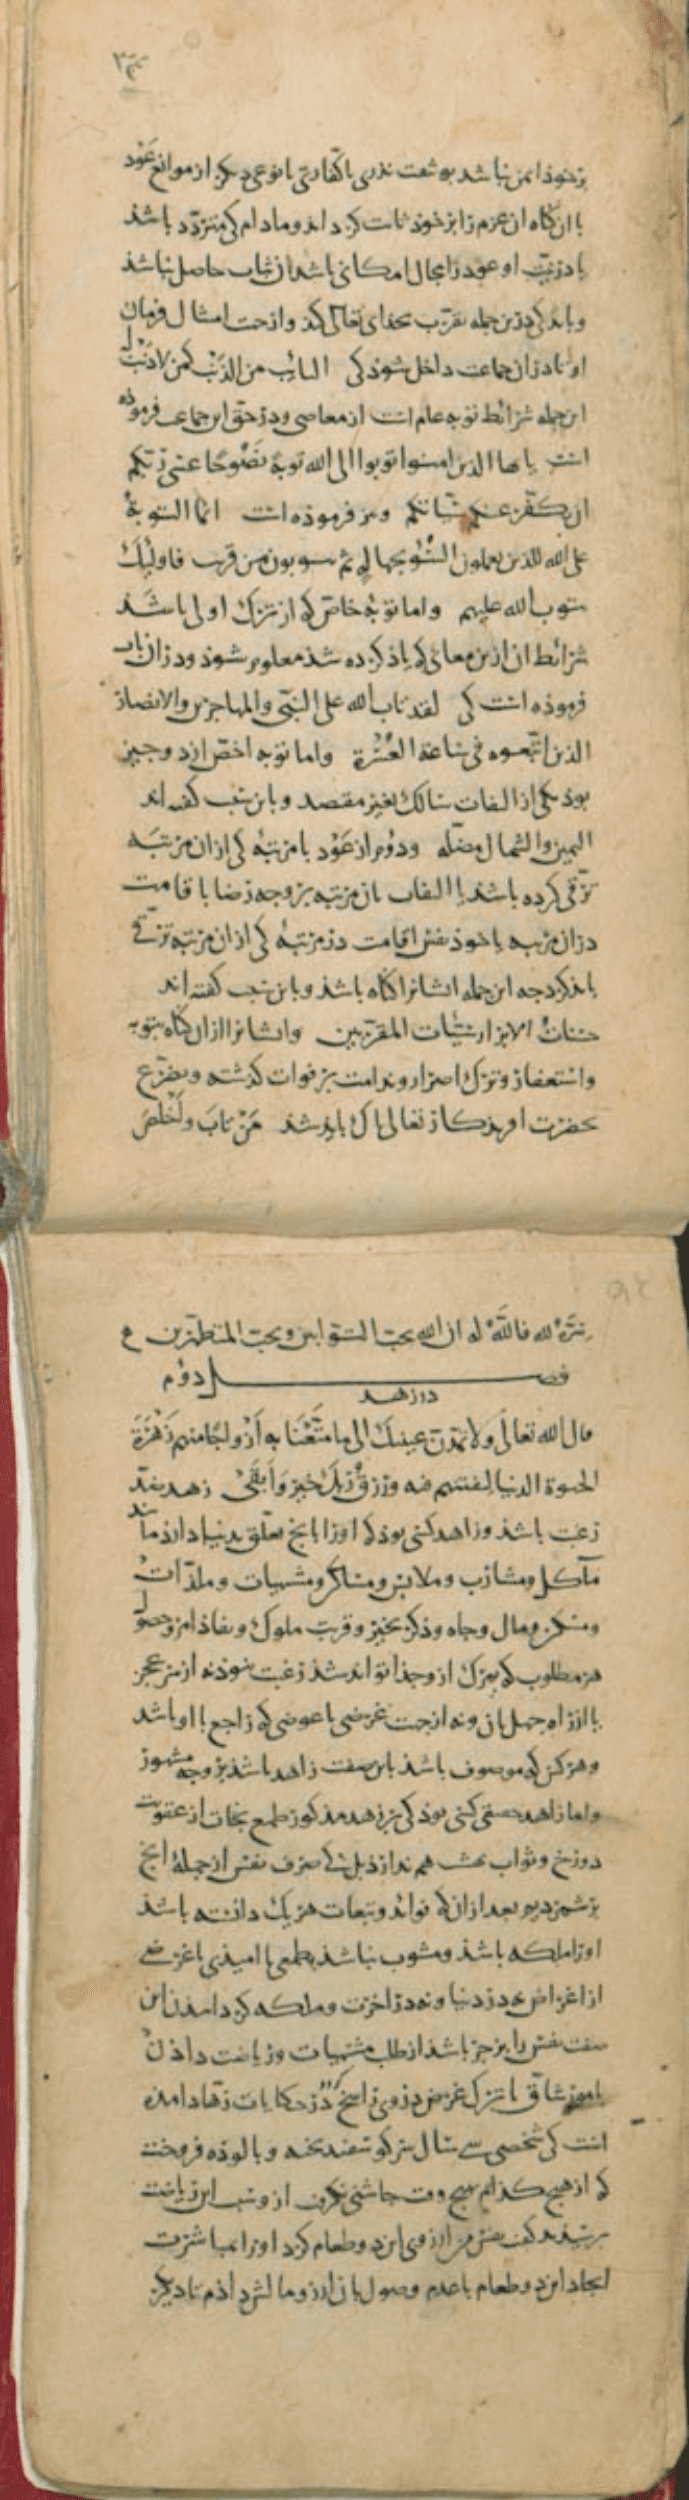 ۳۴
بر خود ایمن نباشد بوثیقت نذری یا کفارتی یا نوعی دیکر از موانع عود
با آن کناه ان عزم را بر خود ثابت کرداند و ماداام کی متردد باشد
یا در نیت او عود را مجال امکانی باشد آن ثبات حاصل نباشد
و باید کی درین جمله تقرب بخدای تعالی کند و از جهت امتثال فرمان
او تا در ان جماعت داخل شوذ کی التائب من الذنب کمن لا ذنب له
این جمله شرائط توبه عام است از معاصی و در حق این جماعت فرموده
است یا ایها الذین امنوا توبوا الی الله توبة نصوحا عسی ربکم
ان یکفر عنکم سیاتکم و نیز فرموده است انما التوبة
علی الله للذین یعملون السوء بجهالة ثم یتوبون من قریب فاولئک
یتوب الله علیهم و اما توبه خاص که از ترک اولی باشد
شرائط ان ازین معانی که یاذ کرده شد معلوم شوذ و در آن باب
فرموذه است کی لقد تاب الله علی النبی والمهاجرین والانصار
الذین اتبعوه فی ساعة العسرة و اما توبه اخص از دو چیز
بوذ یکی از التفات سالک بغیر مقصد و باین سبب کفته اند
الیمین والشمال مضله و دوم از عود با مرتبه کی از ان مرتبه
ترقی کرده باشد یا التفات بان مرتبه بر وجه رضا با قامت
در ان مرتبه یا خوذ نفس اقامت در مرتبه کی از ان مرتبه ترقی
باید کرد چه این جمله ایشانرا کناه باشد و باین سبب کفته اند
حسنات الابرار سیئات المقربین و ایشانرا از ان کناه بتوبه
و استغفار و ترک اصرار و ندامت بر فوات کذشته و تضرع
بحضرت افریذکار تعالی پاک باید شد من تاب واخلص
سره لله فالله له ان الله یحب التوابین ویحب المتطهرین
فصل دوم
در زهد
قال الله تعالی ولا تمدن عینیک الی ما متعنا به ازواجا منهم زهرة
الحیوة الدنیا لنفتنهم فیه ورزق ربک خیر وابقی زهد ضد
رغبت باشد و زاهد کسی بوذ که اورا بانچ تعلق بدنیا دارد مانند
مآکل و مشارب و ملابس و مساکن و مشتهیات و ملذات
و مال و جاه و ذکر بخیر و قربت ملوک و نفاذ امر و حصول
هر مطلوب که بمرک از و جدا تواند شد رغبت نبوذ نه از سر عجز
یا از راه جهل بان و نه از جهت غرضی یا عوضی که راجع با او باشد
و هر کس که موصوف باشد باین صفت زاهد باشد بر وجه مشهور
و اما زاهد حقیقی کسی بوذ کی بر زهد مذکور طمع نجات از عقوبت
دوزخ و ثواب بهشت هم ندارد بل کی صرف نفس از جمله انچ
بر شمردیم بعد از ان که فوائد و تبعات هر یک دانسته باشد
اورا ملکه باشد و مشوب نباشد بطمعی یا امیدی یا غرضی
از اغراض نه در دنیا و نه در اخرت و ملکه کردانیدن این
صفت نفس را بزجر باشد از طلب مشتهیات و ریاضت دادن
بامور شاق تا ترک غرض در وی راسخ کردد در حکایات زهاد امده
است کی شخصی سی سال سر کوسفند پخته و پالوذه فروخت
که از هیچ کدام هیچ وقت چاشنی نکرفت از و سبب این ریاضت
پرسیدند کفت نفس من ارزوی این دو طعام کرد اورا بمباشرت
اتخاذ این دو طعام با عدم وصول بان ارزو مالش دادم تا دیکر